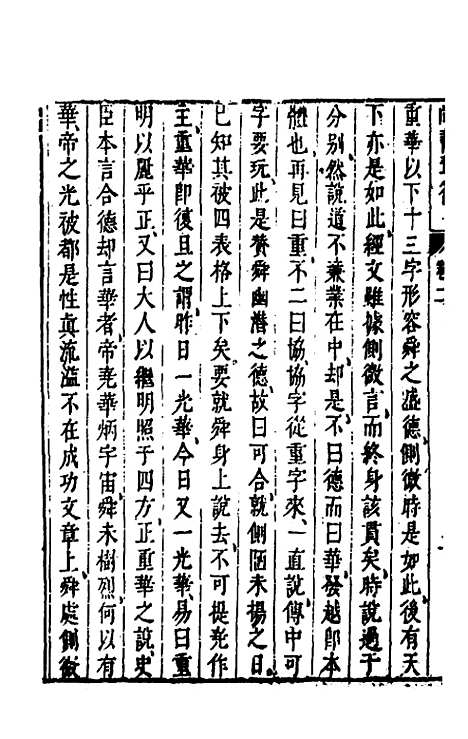 卷二
重華以下十三字形容舜之盛德側微時是如此後有天
下亦是如此經文雖據側微言而終身該貫矣時說過于
分別然說道不兼業在中却是不曰德而曰華發越卽本
體也再見曰重不二曰協協字從重字來一直說傳中可
字要玩此是贊舜幽潛之德故曰可合就側陋未揚之日
已知其被四表格上下矣要就舜身上說去不可提堯作
主重華即復旦之謂昨日一光華今日又一光華易曰重
明以麗乎正又曰大人以繼明照于四方正重華之說史
臣本言合德却言華者帝堯華炳宇宙舜未樹烈何以有
華帝之光被都是性眞流溢不在成功文章上舜處側微